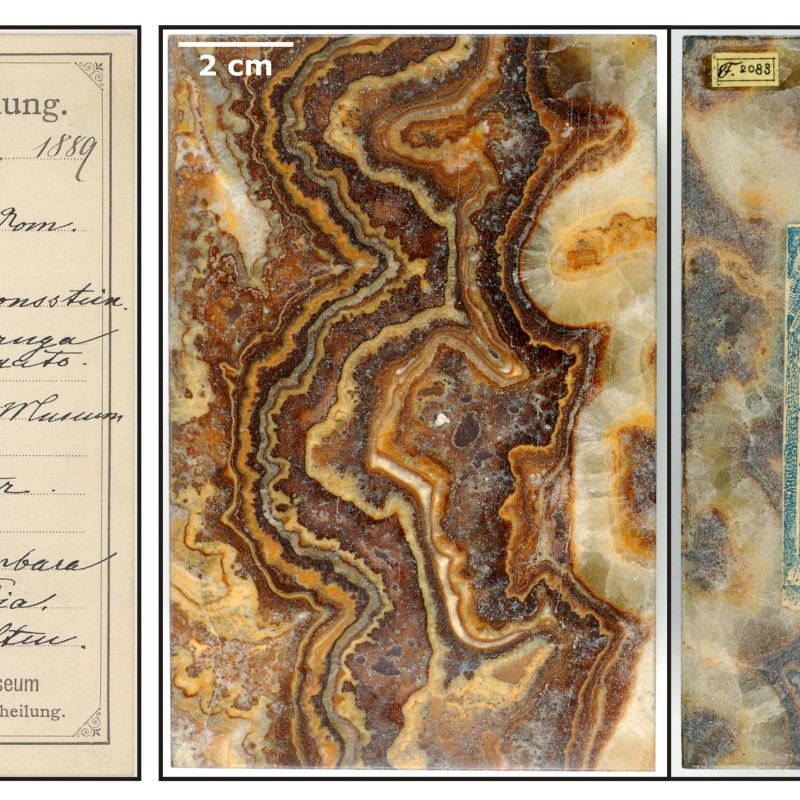 lung.
1889
Rom.
onsstein.
Museum
r.
rbara
ia.
lten.
seum
heilung.
2 cm
F. 2083